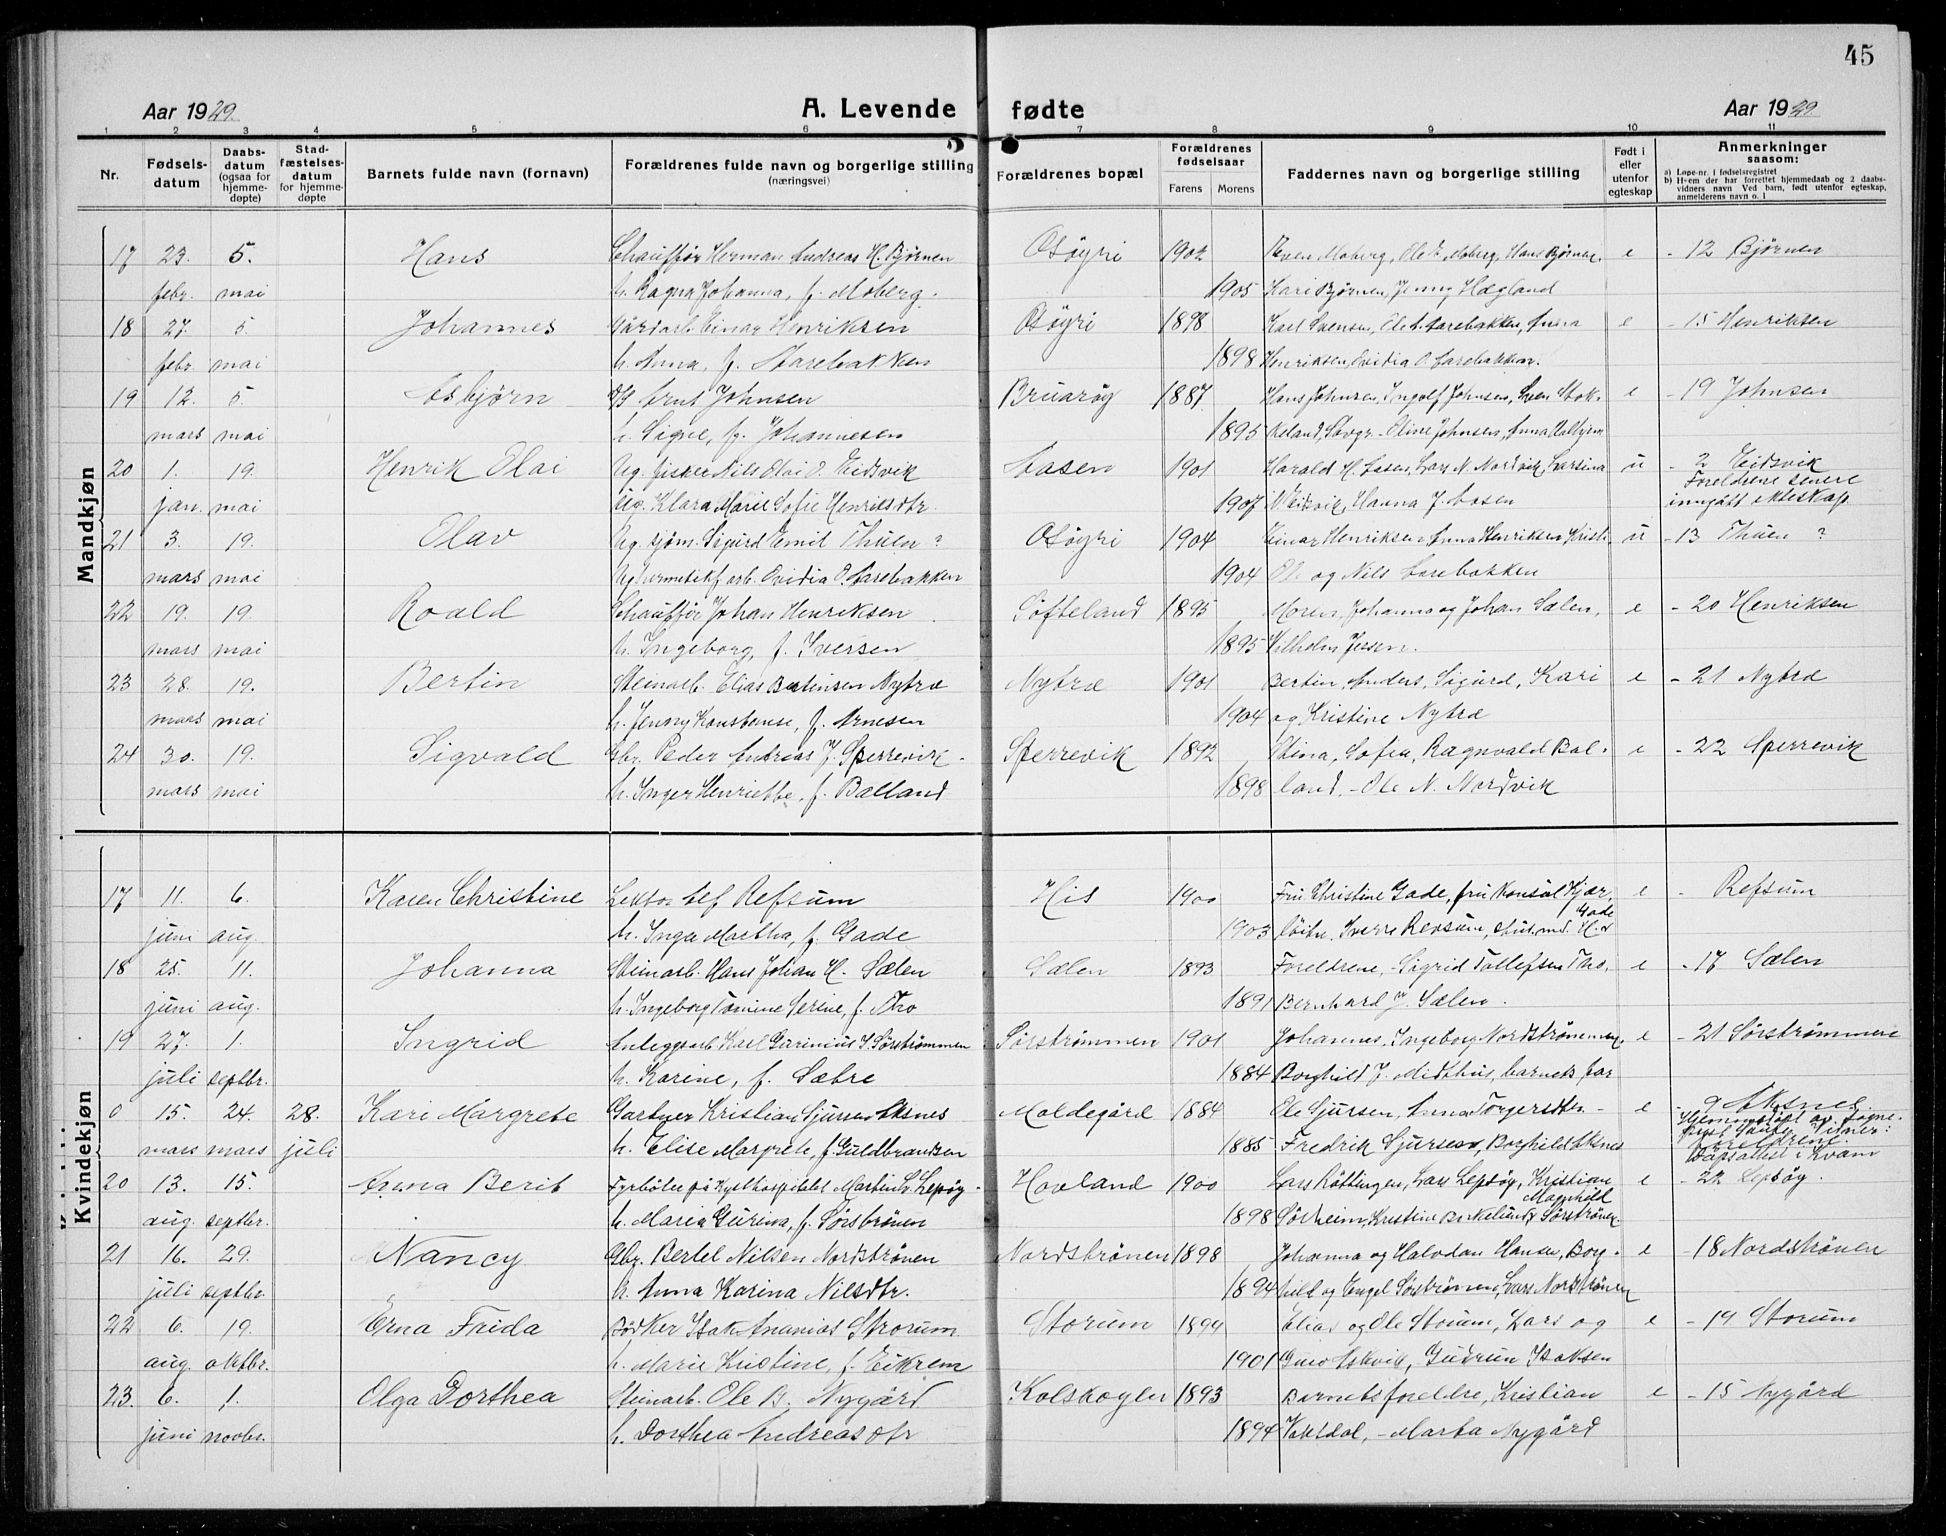 45
Aar 1929. A. Levende fødte Aar 1929.
1 2 3 4 5 6 7 8 9 10 11
Nr. Fødsels-datum Daabs-datum (ogsaa for hjemme-døpte) Stad-fæstelses-datum for hjemme-døpte Barnets fulde navn (fornavn) Forældrenes fulde navn og borgerlige stilling (næringsvei) Forældrenes bopæl Forældrenes fødselsaar Farens Morens Faddernes navn og borgerlige stilling Født i eller utenfor egteskap Anmerkninger saasom:
a) Løpe-nr. i fødselsregistret
b) Hvem der har forrettet hjemmedaab og 2 daabs-vidners navn Ved barn, født utenfor egteskap, anmelderens navn o. l
Mandkjøn
17 23. 5. Hans Chauffør Herman Andreas H. Bjørnen Osøyri 1902 Even Moberg, Ole E. Moberg, Hans Bjørnen, e - 12 Bjørnen
febr. mai h. Ragna Johanna, f. Moberg. 1905 Kari Bjørnen, Jenny Hægland
18 27. 5. Johannes Gårdarb. Einar Henriksen Osøyri 1898 Karl Svensen, Ole L. Sarebakken, Anna e - 15 Henriksen
febr. mai h. Anna, f. Sarebakken 1898 Henriksen, Ovidia O. Sarebakken.
19 12. 5. Asbjørn Arnt Johnsen Bruarøy 1887 Hans Johnsen, Ingolf Johnsen, Sven Stok- e - 19 Johnsen
mars mai h. Signe, f. Johannesen 1895 keland, Oline Johnsen, Anna Halhjem
20 1. 19. Henrik Olai Ug. fisker Nils Olai O. Eidsvik Aasen 1901 Harald H. Aasen, Lars N. Nordvik, Larsina u - 2 Eidsvik
jan. mai Ug. Klara Marie Sofie Henriksdtr. 1907 Eidsvik, Hanna J. Aasen Foreldrene senere inngått ekteskap
21 3. 19. Olav Ug. sjøm. Sigurd Emil Thuen? Osøyri 1904 Einar Henriksen, Anna Henriksen, Kristi u - 13 Thuen ?
mars mai Ug. hermetikf. arb. Ovidia O. Sarebakken 1904 O. og Nils Sarebakken
22 19. 19. Roald Chauffør Johan Henriksen Søfteland 1895 Moren, Johanna og Johan Sælen, e - 20 Henriksen
mars mai h. Ingeborg, f. Iversen 1895 Vilhelm Jessen.
23 28. 19. Bertin Steinarb. Elias Bertinsen Nytræ Nytræ 1901 Bertin, Anders, Sigurd, Kari e - 21 Nytræ
mars mai h. Jenny Konstanse, f. Arnesen 1904 og Kristine Nytræ
24 30. 19. Sigvald Gbr. Peder Andreas J. Sperrevik Sperrevik 1892 Stina, Sofia, Ragnvald Bal- e - 22 Sperrevik
mars mai h. Inger Henriette, f. Balland 1898 land, - Ole N. Nordvik
Kvindekjøn
17 11. 6. Karen Christine Lektor Alf Refsum His 1900 Fru Christine Gade, fru konsul Kjær, e - Refsum
juni aug. h. Inga Martha, f. Gade 1903 Sverre Refsum, stud. med. H. Gade
18 25. 11. Johanna Steinarb. Hans Johan H. Sælen Sælen 1893 Foreldrene, - Sigrid Tollefsen Tho, e - 17 Sælen
juni aug. h. Ingeborg Tomine Serine, f. Tho 1891 Bernhard J. Sælen.
19 27. 1. Ingrid Anleggsarb. Karl Gerinius S. Sørstrømmen Sørstrømmen 1901 Johannes, Ingeborg Nordstrømmen, e - 21 Sørstrømmen
juli septbr. h. Karine, f. Sæbre 1884 Borghild J. Midthus, barnets far
0 15. 24. 28. Kari Margrete Gartner Kristian Sjursen Aksnes Moldegård 1884 Ole Sjursen, Anna Torgersdtr. - e - 9 Aksnes.
mars mars juli h. Elise Margrete, f. Guldbrandsen 1885 Fredrik Sjursen, Borghild Aksnes Hjemmedøpt av sogneprest Vitner: foreldrene. Dåpsattest i Kvam
20 13. 15. Anna Berit Fyrbøter på Kysthospitalet Martin L. Lepsøy Hovland 1900 Lars Røttingen, Lars Lepsøy, Kristian e - 22 Lepsøy.
aug. septbr. h. Maria Gurina, f. Sørstrønen 1898 Solheim, Kristine Birkelund, Magnhild Sørstrønen
21 16. 29. Nancy Gbr. Bertel Nilsen Nordstrønen Nordstrønen 1898 Johanna og Halvdan Hansen, Borg- e - 18 Nordstrønen
juli septbr. h. Anna Karina Nilsdtr. 1894 hild og Engel Sørstrønen, Lars Nordstrønen
22 6. 19. Erna Frida Bødker Isak Ananias Storum Storum 1894 Elias og Ole Storum, Lars og e - 19 Storum
aug. oktbr. h. Marie Kristine, f. Eikrem 1901 Askvik, Gudrun Isaksen
23. 6. 1. Olga Dorthea Steinarb. Ole B. Nygård Kolskogen 1893 Barnets foreldre, Kristian e - 15 Nygård
juni novbr. h. Dorthea Andreasdtr 1894 Vaksdal, - Marta Nygård